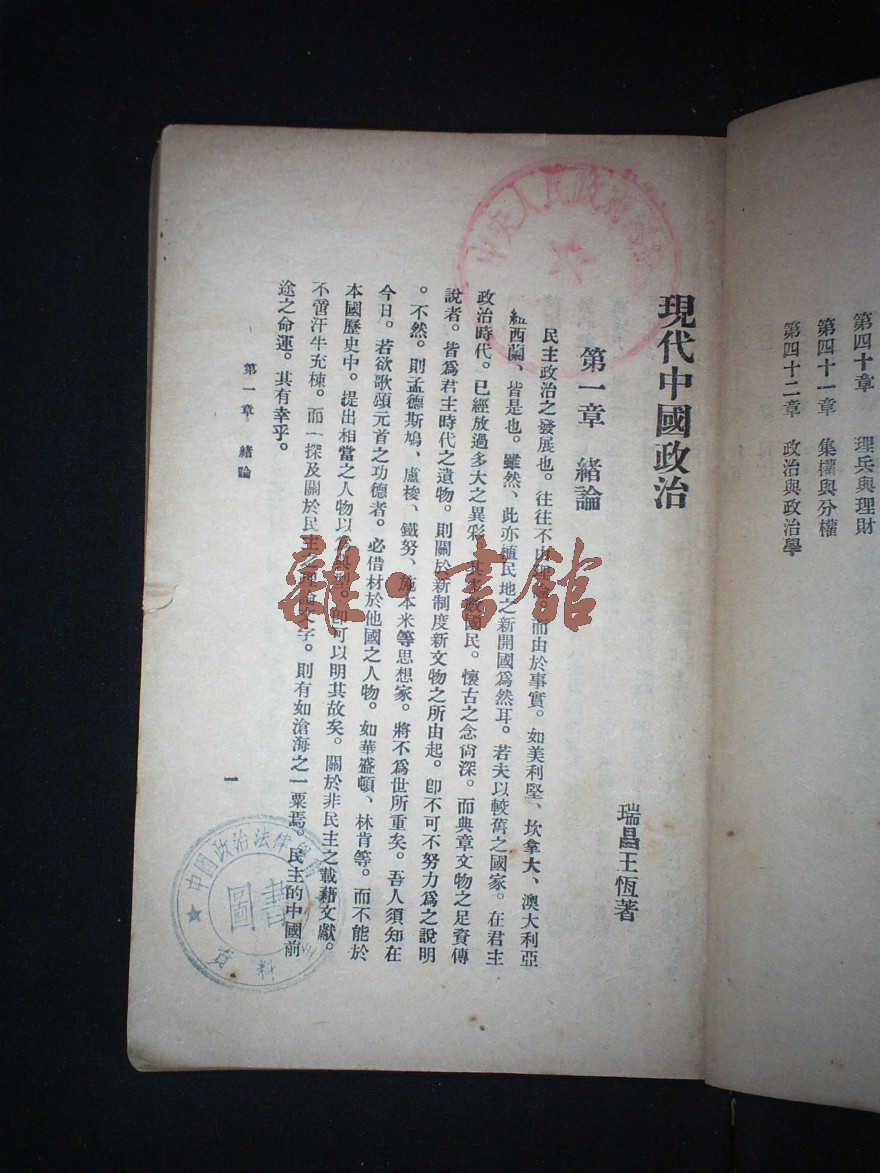 第四十章　理兵與理財
第四十一章　集權與分權
第四十二章　政治與政治學
現代中國政治
瑞昌王恆著
第一章　緒論
民主政治之發展也。往往不由理論。而由於事實。如美利堅、坎拿大、澳大利亞
紐西蘭、皆是也。雖然、此亦植民地之新開國爲然耳。若夫以較舊之國家。在君主
政治時代。已經放過多大之異彩。其多數國民。懷古之念尙深。而典章文物之足資傳
說者。皆爲君主時代之遺物。則關於新制度新文物之所由起。卽不可不努力爲之說明
。不然。則孟德斯鳩、盧梭、鐵努、施本米等思想家。將不爲世所重矣。吾人須知在
今日。若欲歌頌元首之功德者。必借材於他國之人物。如華盛頓、林肯等。而不能於
本國歷史中。提出相當之人物以爲。卽可以明其故矣。關於非民主之載籍文獻。
不啻汗牛充棟。而一探及關於民主之理論文字。則有如滄海之一粟焉。民主的中國前
途之命運。其有幸乎。
第一章　緒論
一
中央人民政府
中國政治法律
圖書
資料
雜·書館